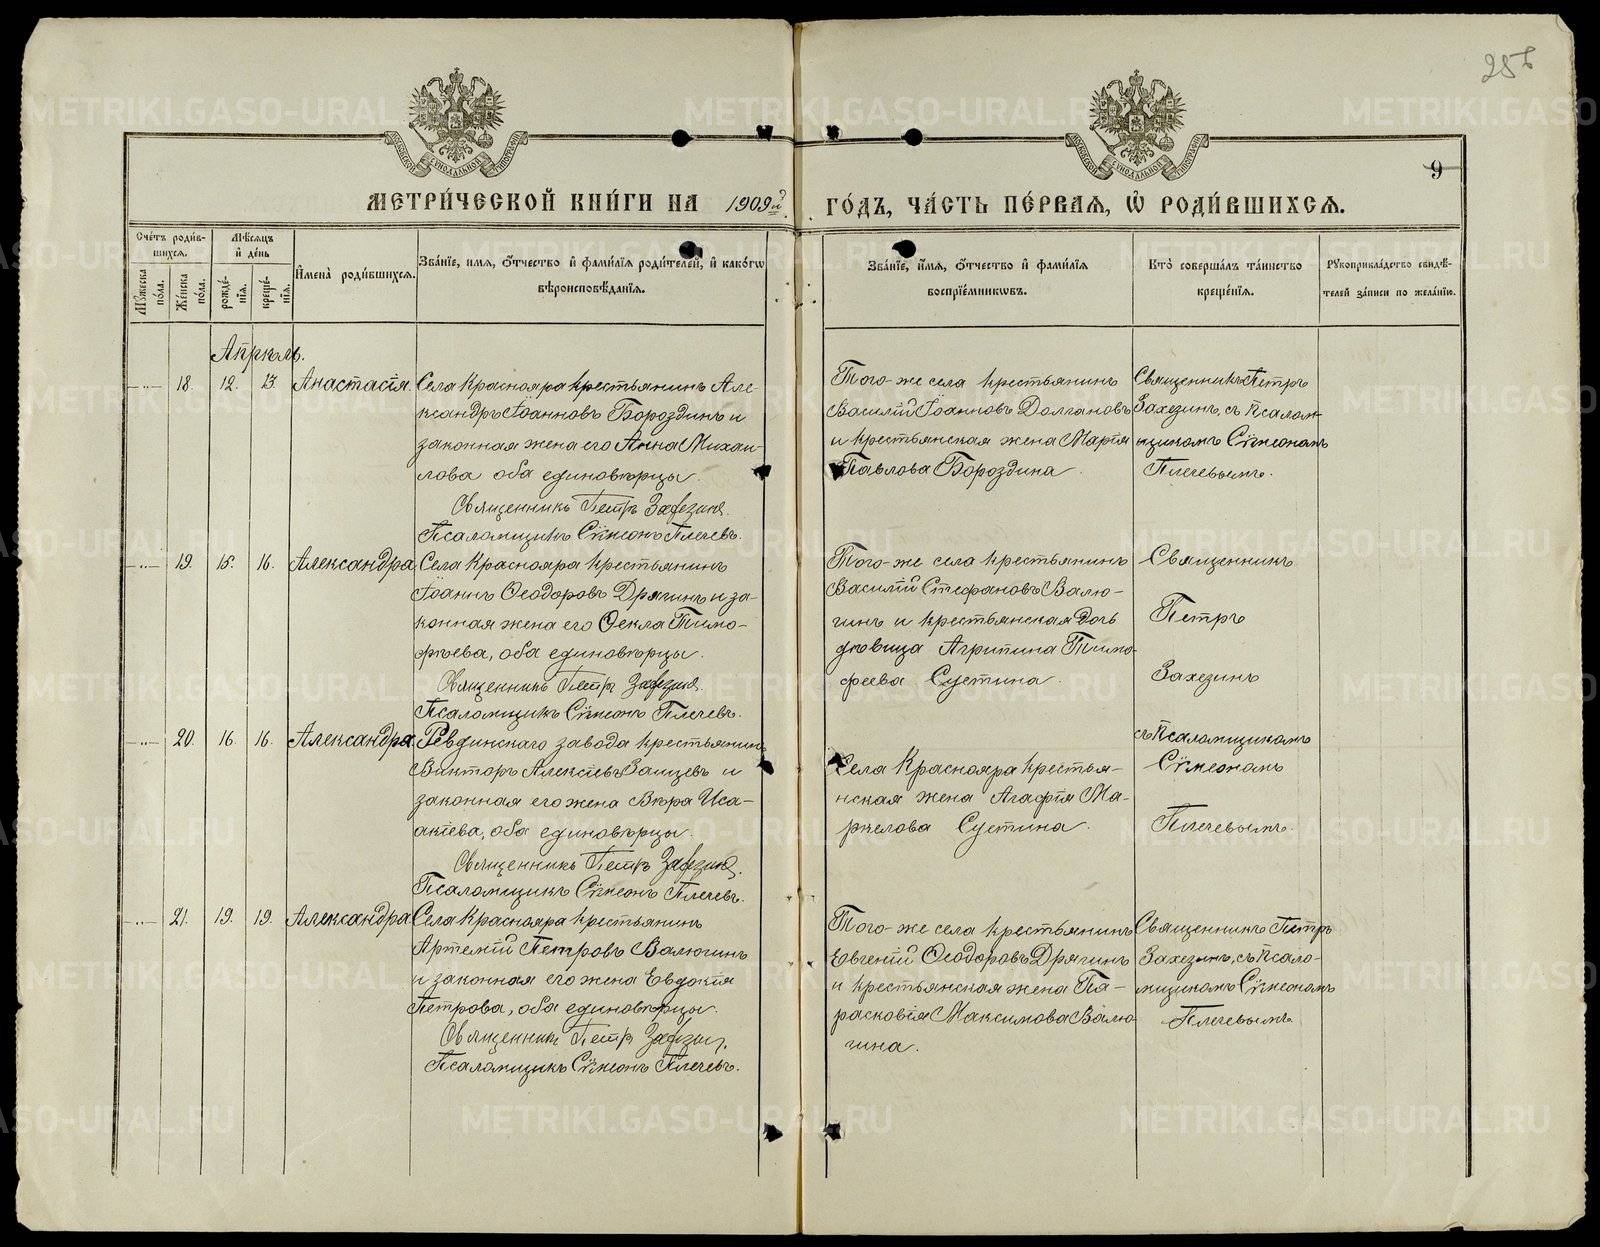 256
9
МЕТРИ́ЧЕСКОЙ КНИ́ГИ НА 1909й ГО́ДЪ, ЧА́СТЬ ПЕ́РВАЯ, Ѡ҆ РОДИ́ВШИХСЯ.
Сче́тъ роди́в-
шихся.
Мꙋ́жеска по́ла.
Же́нска по́ла.
Мѣ́сяцъ
и҆ де́нь
рожде́-
нїя.
креще́-
нїя.
И҆мена̀ роди́вшихся.
Зва́нїе, и҆мя, ѻ҆́тчество и҆ фами́лїя роди́телей, и҆ како́гѡ
вѣроисповѣ́данїя.
Зва́нїе, и҆́мя, ѻ҆́тчество и҆ фами́лїя
воспрїе́мникѡвъ.
Кто̀ соверша́лъ та́инство
креще́нїя.
Рꙋкоприкла́дство свидѣ́-
телей за́писи по жела́нїю.
Апрѣль.
18. 12. 13. Анастасія.
Села Краснояра крестьянинъ Але-
ксандръ Іоанновъ Бороздинъ и
законная жена его Анна Михаи-
лова оба единовѣрцы.
Священникъ Петръ Захезинъ.
Псаломщикъ Сѵмеонъ Плечевъ.
Того-же села крестьянинъ
Василій Іоанновъ Долгановъ
и крестьянская жена Марія
Павлова Бороздина.
Священникъ Петръ
Захезинъ, съ псалом-
щикомъ Сѵмеономъ
Плечевымъ.
19. 15. 16. Александра
Села Краснояра крестьянинъ
Іоаннъ Ѳеодоровъ Дрягинъ и за-
конная жена его Ѳекла Тимо-
фѣева, оба единовѣрцы.
Священникъ Петръ Захезинъ.
Псаломщикъ Сѵмеонъ Плечевъ.
Того-же села крестьянинъ
Василій Стефановъ Валю-
гинъ и крестьянская дочь
дѣвица Агрипина Тимо-
феева Суетина.
Священникъ
Петръ
Захезинъ
съ Псаломщикомъ
Сѵмеономъ
Плечевымъ.
20. 16. 16. Александра.
Ревдинскаго завода крестьянинъ
Викторъ Алексіевъ Заицевъ и
законная его жена Вѣра Иса-
акіева, оба единовѣрцы.
Священникъ Петръ Захезинъ.
Псаломщикъ Сѵмеонъ Плечевъ.
Села Краснояра крестья-
нская жена Агафія Ма-
ркелова Суетина.
21. 19. 19. Александра.
Села Краснояра крестьянинъ
Артемій Петровъ Валюгинъ
и законная его жена Евдокія
Петрова, оба единовѣрцы.
Священникъ Петръ Захезинъ.
Псаломщикъ Сѵмеонъ Плечевъ.
Того-же села крестьянинъ
Евгеній Ѳеодоровъ Дрягинъ
и крестьянская жена Па-
расковія Максимова Валю-
гина.
Священникъ Петръ
Захезинъ, съ Псало-
мщикомъ Сѵмеономъ
Плечевымъ